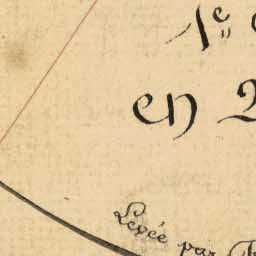 1e
en 2
Levée par